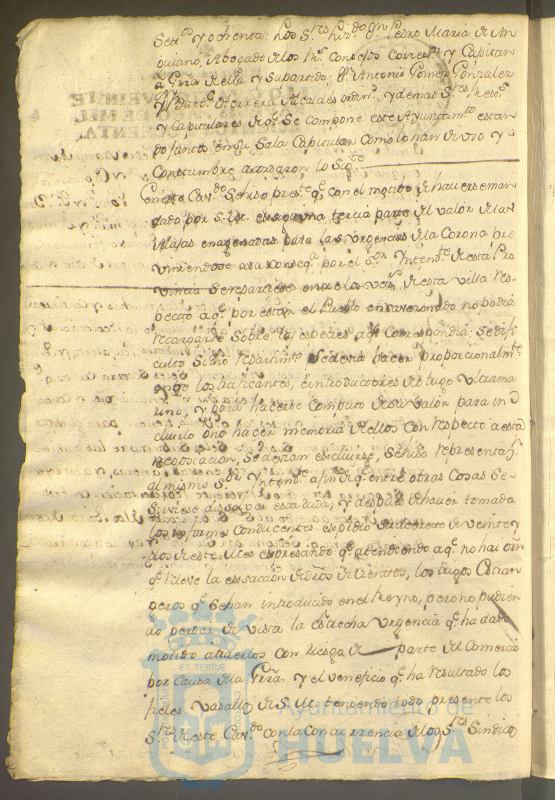 Set.ª y ochenta: Los S.res Liz.do Dn Pedro Maria de An
guiano, Abogado de los R.s Consejos Correx.r y Capitan
a Grra de ella y su Partido: Dn Antonio Gomez Gonzalez
y Bar.me Herrera Alcaldes ordin.s y demas S.res Rex.s
y Capitulares de q.e Se compone este Ayuntam.to estan
do Juntos en su Sala Capitular Como lo han de Uso y
Constumbre acordaron lo Sig.te
En este Cav.do Se hiso pres.te q.e con el motibo de haverse man
dado por S. M. una tercia parte del valor de las
Alajas enagenadas para las Urgencias de la Corona pre
viniendose a su Conseq.a por el S.or Yntend.te de esta Pro
vincia Se repartiese entre los vec.s de esta villa Res
pecto a q.e por estar el Pueblo encavezonado no podia
recargarse Sobre las especies a q.e Correspondia: Se difi
culto Si dho repartim.to Se devia hacer proporcionalm.te
entre los traficantes, e introductores de trigo Ultrama
rino, y para hacerse Computo de su valor para in
cluirlo ono hacer memoria de ellos Con respecto a esta
negociacion, Se devian escluirse, Se hiso representaz.n
al mismo S.or Yntend.te a fin de q.e entre otras Cosas Se
Sirviese disolver esta duda, y despues de haver tomado
los informes Conducentes expidio Su decreto de veinte y
dos de este Mes expresando q.e atendiendo a q.e no hai orn
q.e releve la exsacción de dros de Cientos, los trigos Estran
geros q.e Se han introducido en el Reyno, pero no pudien
do perder de vista la estrecha urgencia q.e ha dado
motibo a traerlos con riesgo de parte del Comercio
por Causa de la Grra. y el veneficio q.e ha resultado los
fieles vasallos de S. M. teniendo todo presente los
S.res de este Cav.do con la Concurrencia de los S.res Sindicos
Ayuntamiento de
HUELVA